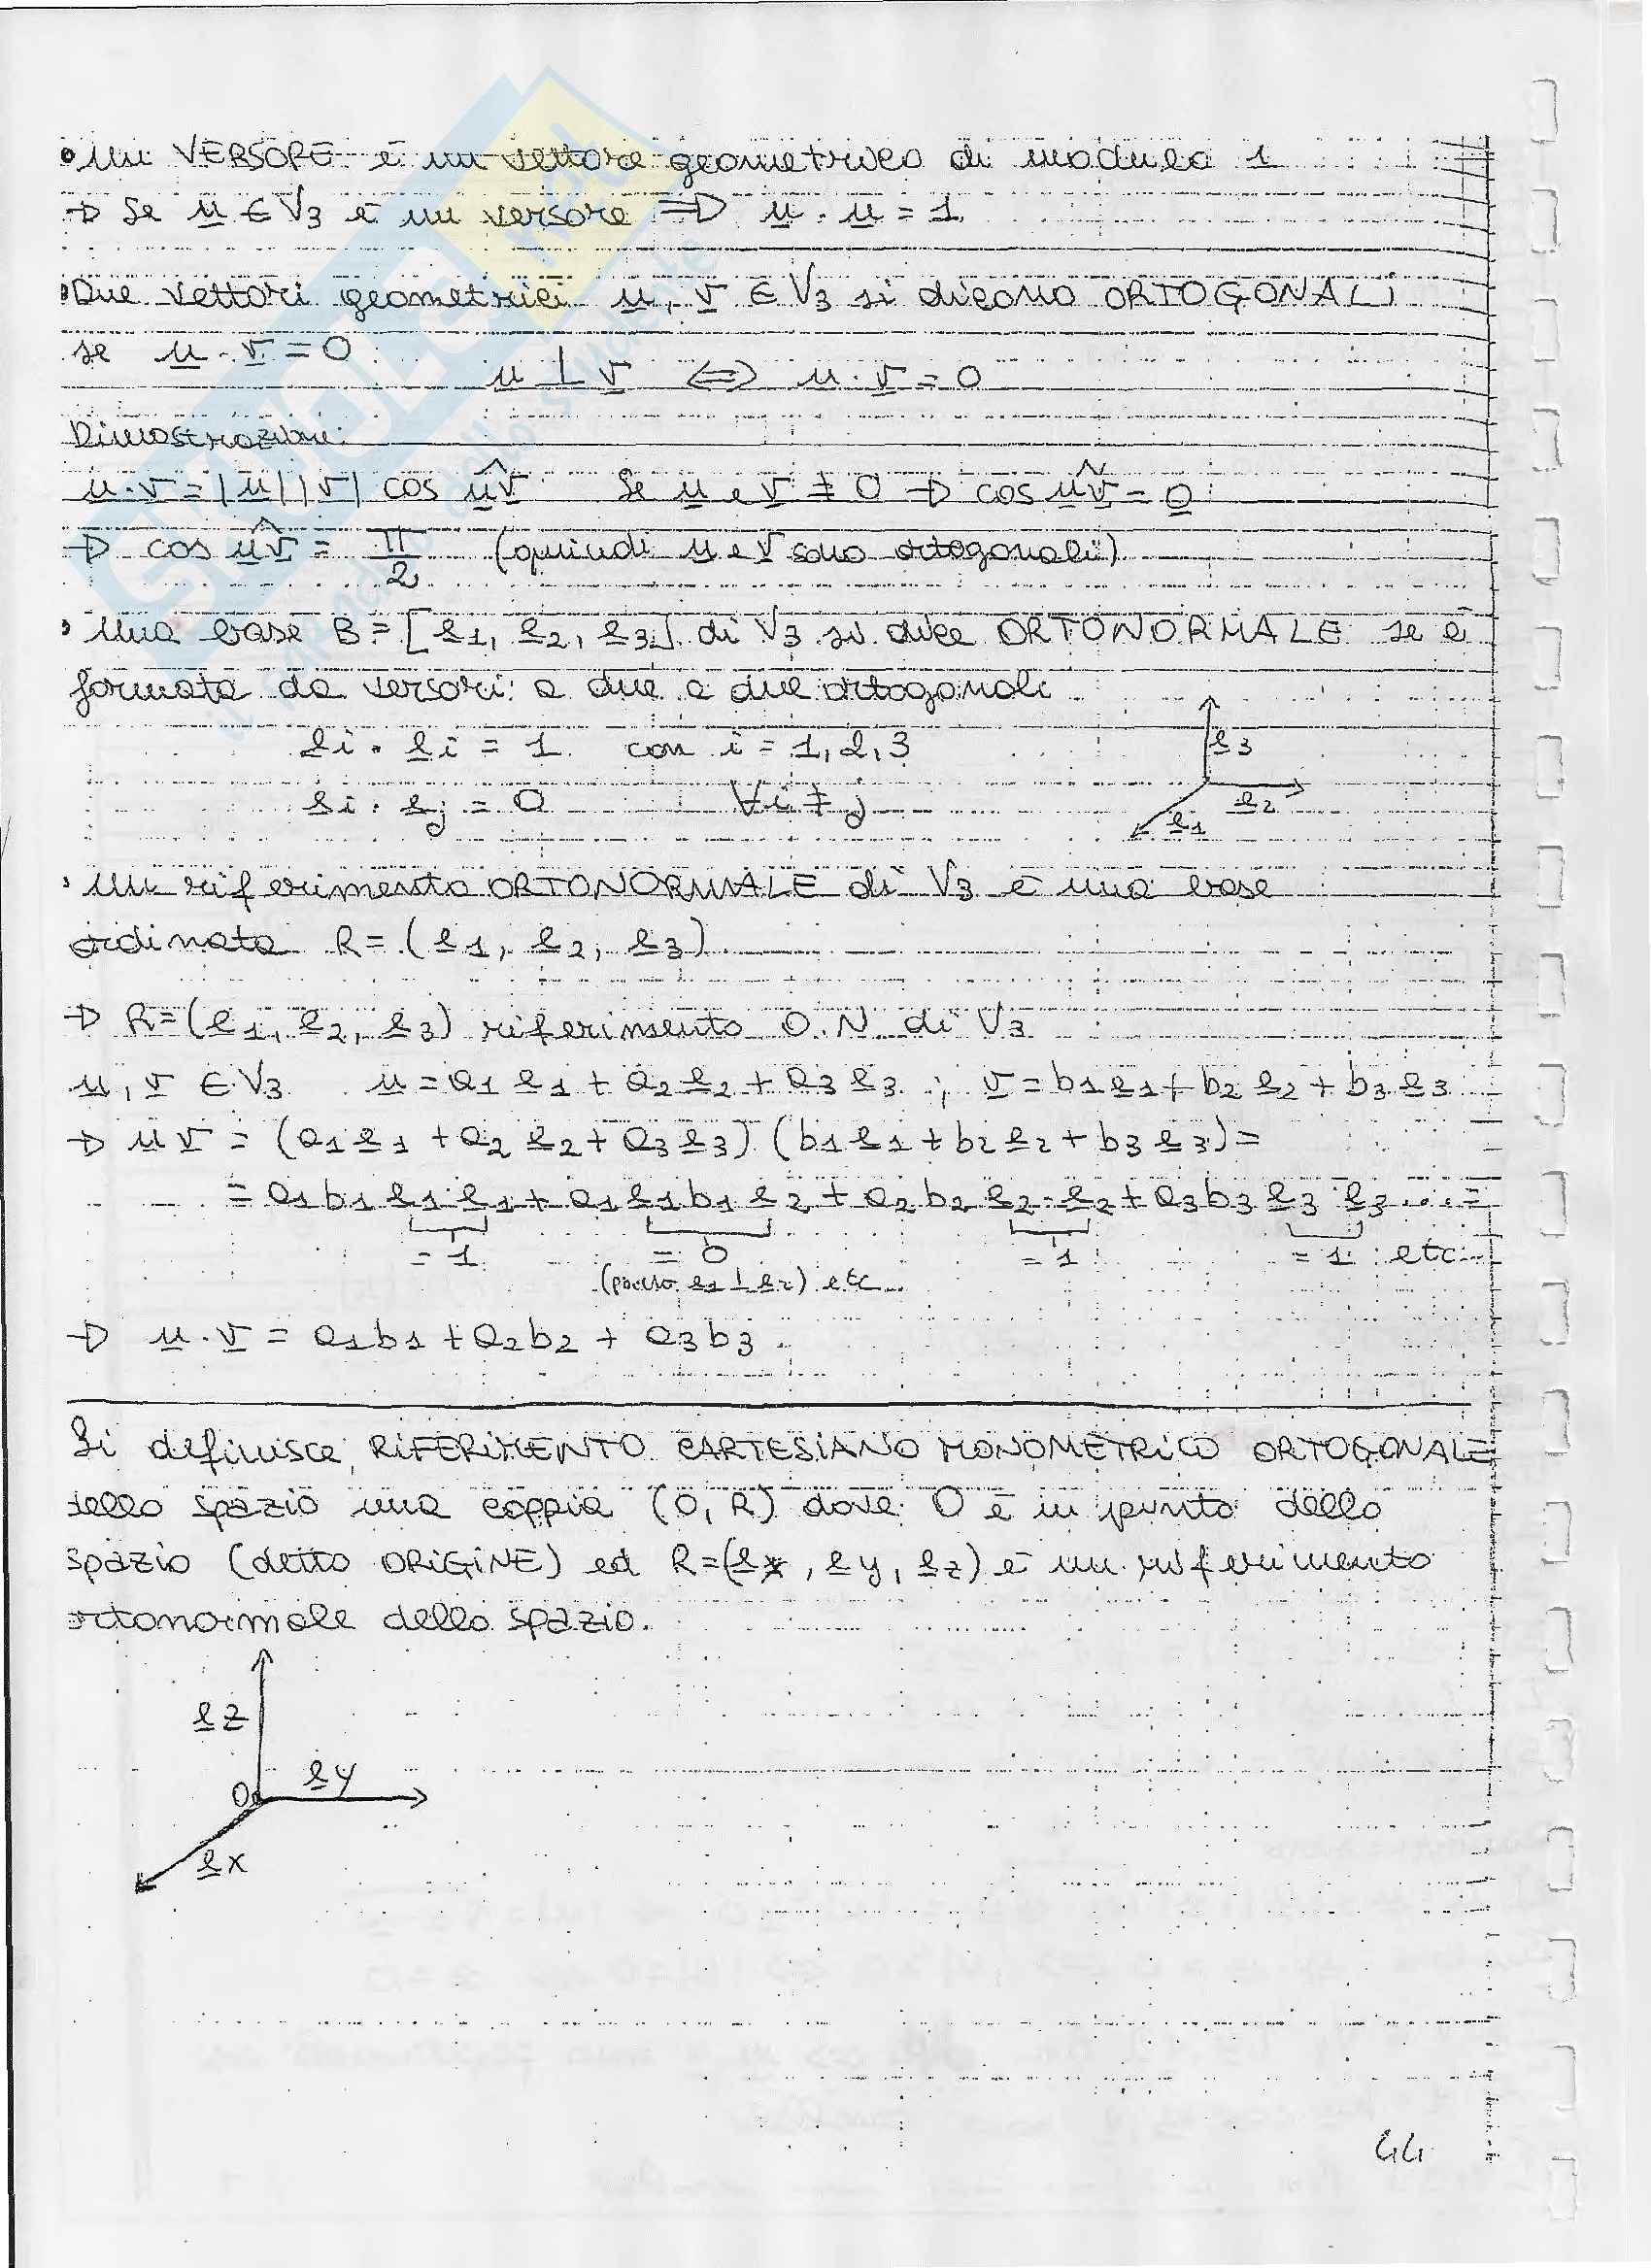 • Un VERSORE è un vettore geometrico di modulo 1
⇒ Se u ∈ V3 è un versore ⇒ u · u = 1
• Due vettori geometrici u, v ∈ V3 si dicono ORTOGONALI
se u · v = 0
u ⊥ v ⇔ u · v = 0
Dimostrazione:
u · v = |u| |v| cos uv̂ Se u e v ≠ 0 ⇒ cos uv̂ = 0
⇒ cos uv̂ = π/2 (quindi u e v sono ortogonali)
• Una base B = [e1, e2, e3] di V3 si dice ORTONORMALE se è
formata da versori a due a due ortogonali
ei · ei = 1 con i = 1, 2, 3
e3
ei · ej = 0 ∀ i ≠ j
e2
e1
• Un riferimento ORTONORMALE di V3 è una base
ordinata R = (e1, e2, e3)
⇒ R = (e1, e2, e3) riferimento O.N. di V3
u, v ∈ V3 u = a1 e1 + a2 e2 + a3 e3 ; v = b1 e1 + b2 e2 + b3 e3
⇒ u v = (a1 e1 + a2 e2 + a3 e3) (b1 e1 + b2 e2 + b3 e3) =
= a1 b1 e1 · e1 + a1 e1 b1 e2 + a2 b2 e2 · e2 + a3 b3 e3 · e3 ... =
= 1 = 0 = 1 = 1 etc...
(poichè e1 ⊥ e2) etc...
⇒ u · v = a1 b1 + a2 b2 + a3 b3.
Si definisce RIFERIMENTO CARTESIANO MONOMETRICO ORTOGONALE
dello spazio una coppia (O, R) dove O è in punto dello
spazio (detto ORIGINE) ed R = (ex, ey, ez) è un riferimento
ortonormale dello spazio.
ez
O ey
ex
44